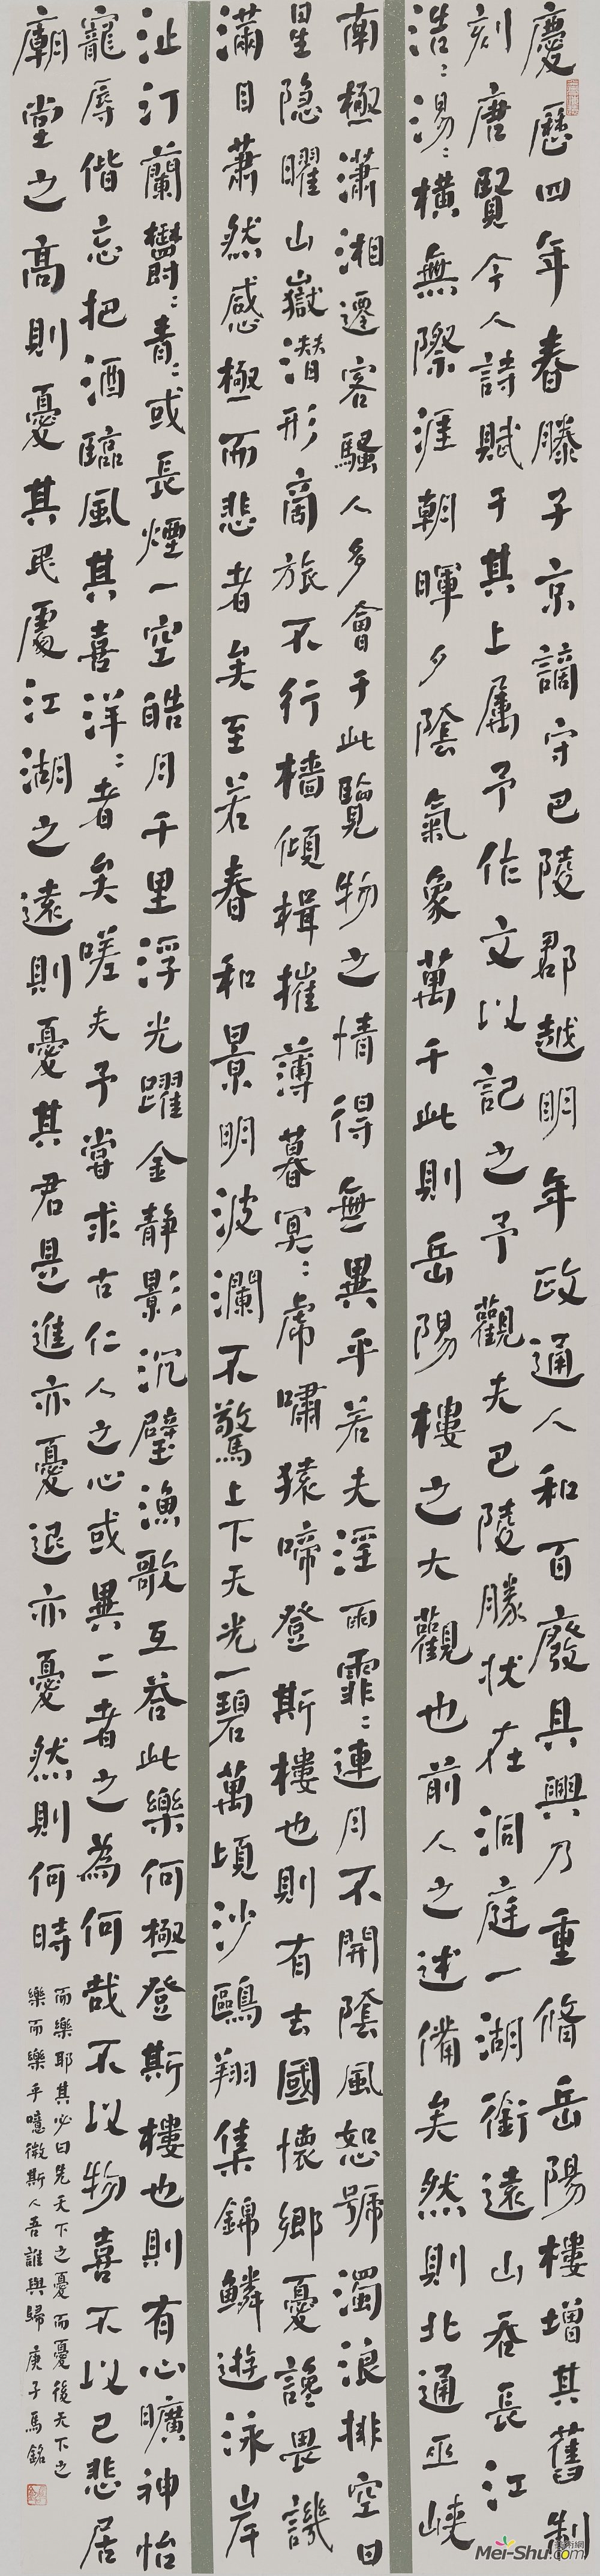 慶歷四年春滕子京謫守巴陵郡越明年政通人和百廢具興乃重脩岳陽樓增其舊制
刻唐賢今人詩賦于其上屬予作文以記之予觀夫巴陵勝狀在洞庭一湖銜遠山吞長江
浩〻湯〻橫無際涯朝暉夕陰氣象萬千此則岳陽樓之大觀也前人之述備矣然則北通巫峽
南極瀟湘遷客騷人多會于此覽物之情得無異乎若夫淫雨霏〻連月不開陰風怒號濁浪排空日
星隱曜山嶽潛形商旅不行檣傾楫摧薄暮冥〻虎嘯猿啼登斯樓也則有去國懷鄉憂讒畏譏
滿目蕭然感極而悲者矣至若春和景明波瀾不驚上下天光一碧萬頃沙鷗翔集錦鱗遊泳岸
沚汀蘭鬱〻青〻或長煙一空皓月千里浮光躍金靜影沉璧漁歌互答此樂何極登斯樓也則有心曠神怡
寵辱偕忘把酒臨風其喜洋〻者矣嗟夫予嘗求古仁人之心或異二者之為何哉不以物喜不以己悲居
廟堂之高則憂其民處江湖之遠則憂其君是進亦憂退亦憂然則何時
而樂耶其必曰先天下之憂而憂後天下之
樂而樂乎噫微斯人吾誰與歸 庚子馬銘
Mei-Shu.com